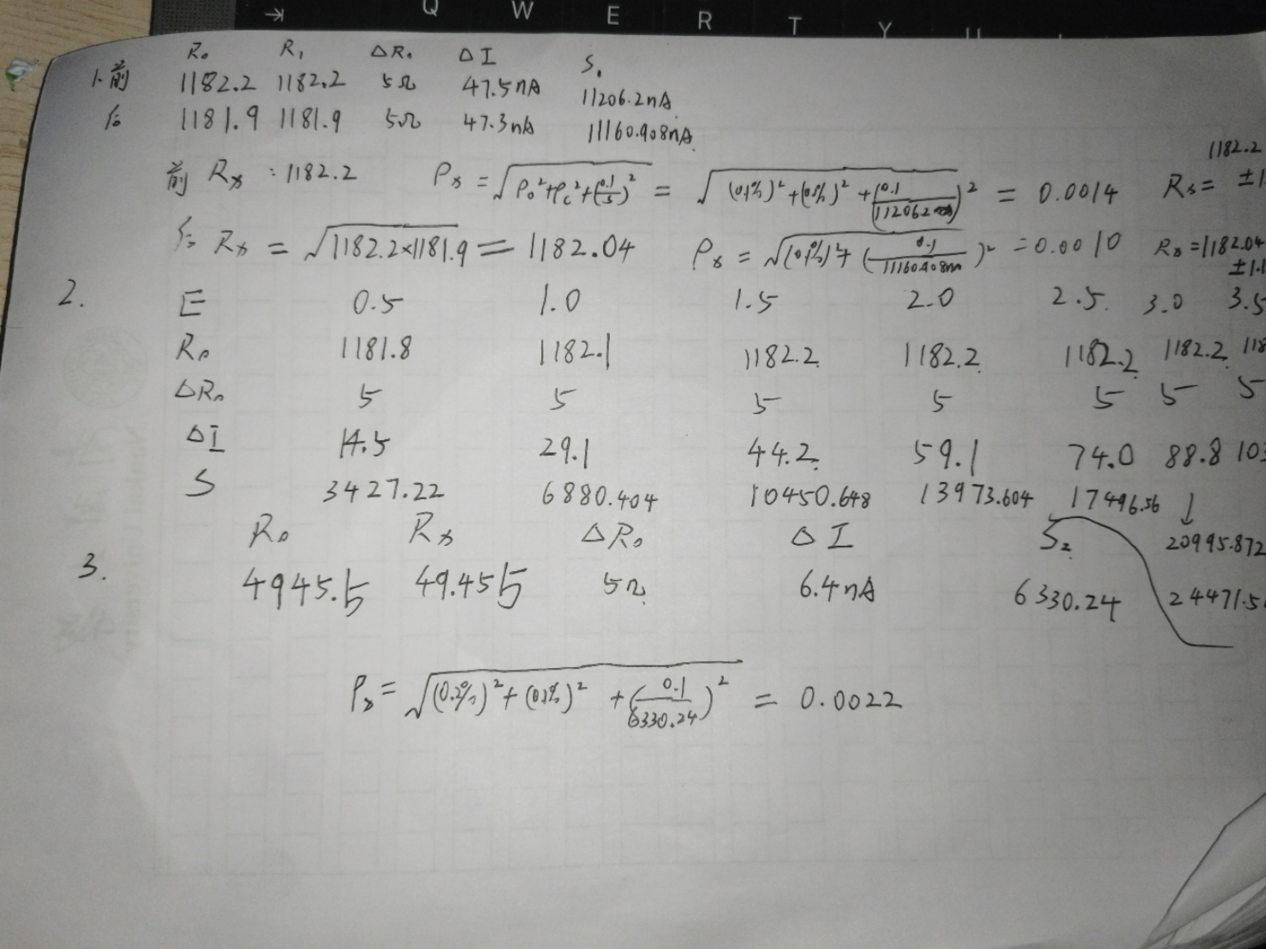 Q W E R T Y U
R₀ R₁ ΔR₀ ΔI S₁
1.前 1182.2 1182.2 5Ω 47.5nA 11206.2nA
后 1181.9 1181.9 5Ω 47.3nA 11160.908nA
前 Rx : 1182.2 ρx = √(ρ₀²+ρc²+(0.1/S)²) = √((0.1%)²+(0.1%)²+(0.1/11206.2nA)²) = 0.0014 Rx = 1182.2 ±1.
后 Rx = √(1182.2×1181.9) = 1182.04 ρx = √((0.1%)²+(0.1/11160.908nA)²) = 0.0010 Rx = 1182.04 ±1.1
2. E 0.5 1.0 1.5 2.0 2.5 3.0 3.5
R₀ 1181.8 1182.1 1182.2 1182.2 1182.2 1182.2 118
ΔR₀ 5 5 5 5 5 5 5
ΔI 14.5 29.1 44.2 59.1 74.0 88.8 103
S 3427.22 6880.404 10450.648 13973.604 17496.56 ↓
20995.872
24471.5
3. R₀ Rx ΔR₀ ΔI S₂
4945.5 49.455 5Ω 6.4nA 6330.24
ρx = √((0.2%)²+(0.1%)²+(0.1/6330.24)²) = 0.0022